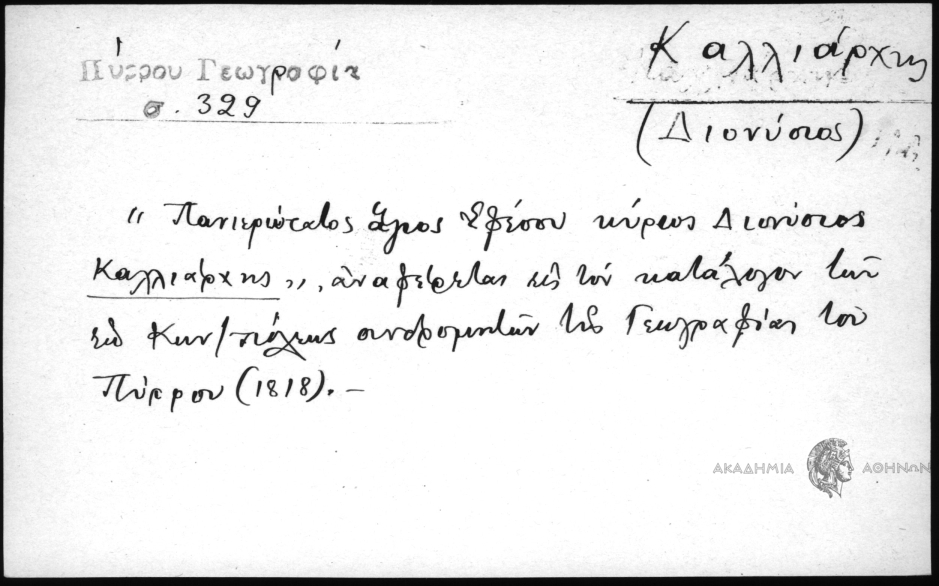 Πύρρου Γεωγραφία
σ. 329
Καλλιάρχης
(Διονύσιος)
" Πανιερώτατος ἅγιος Ἐφέσου κύριος Διονύσιος
Καλλιάρχης ,, , ἀναφέρεται εἰς τὸν κατάλογον τῶν
ἐκ Κων/πόλεως συνδρομητῶν τῆς Γεωγραφίας τοῦ
Πύρρου (1818). —
ΑΚΑΔΗΜΙΑ ΑΘΗΝΩΝ